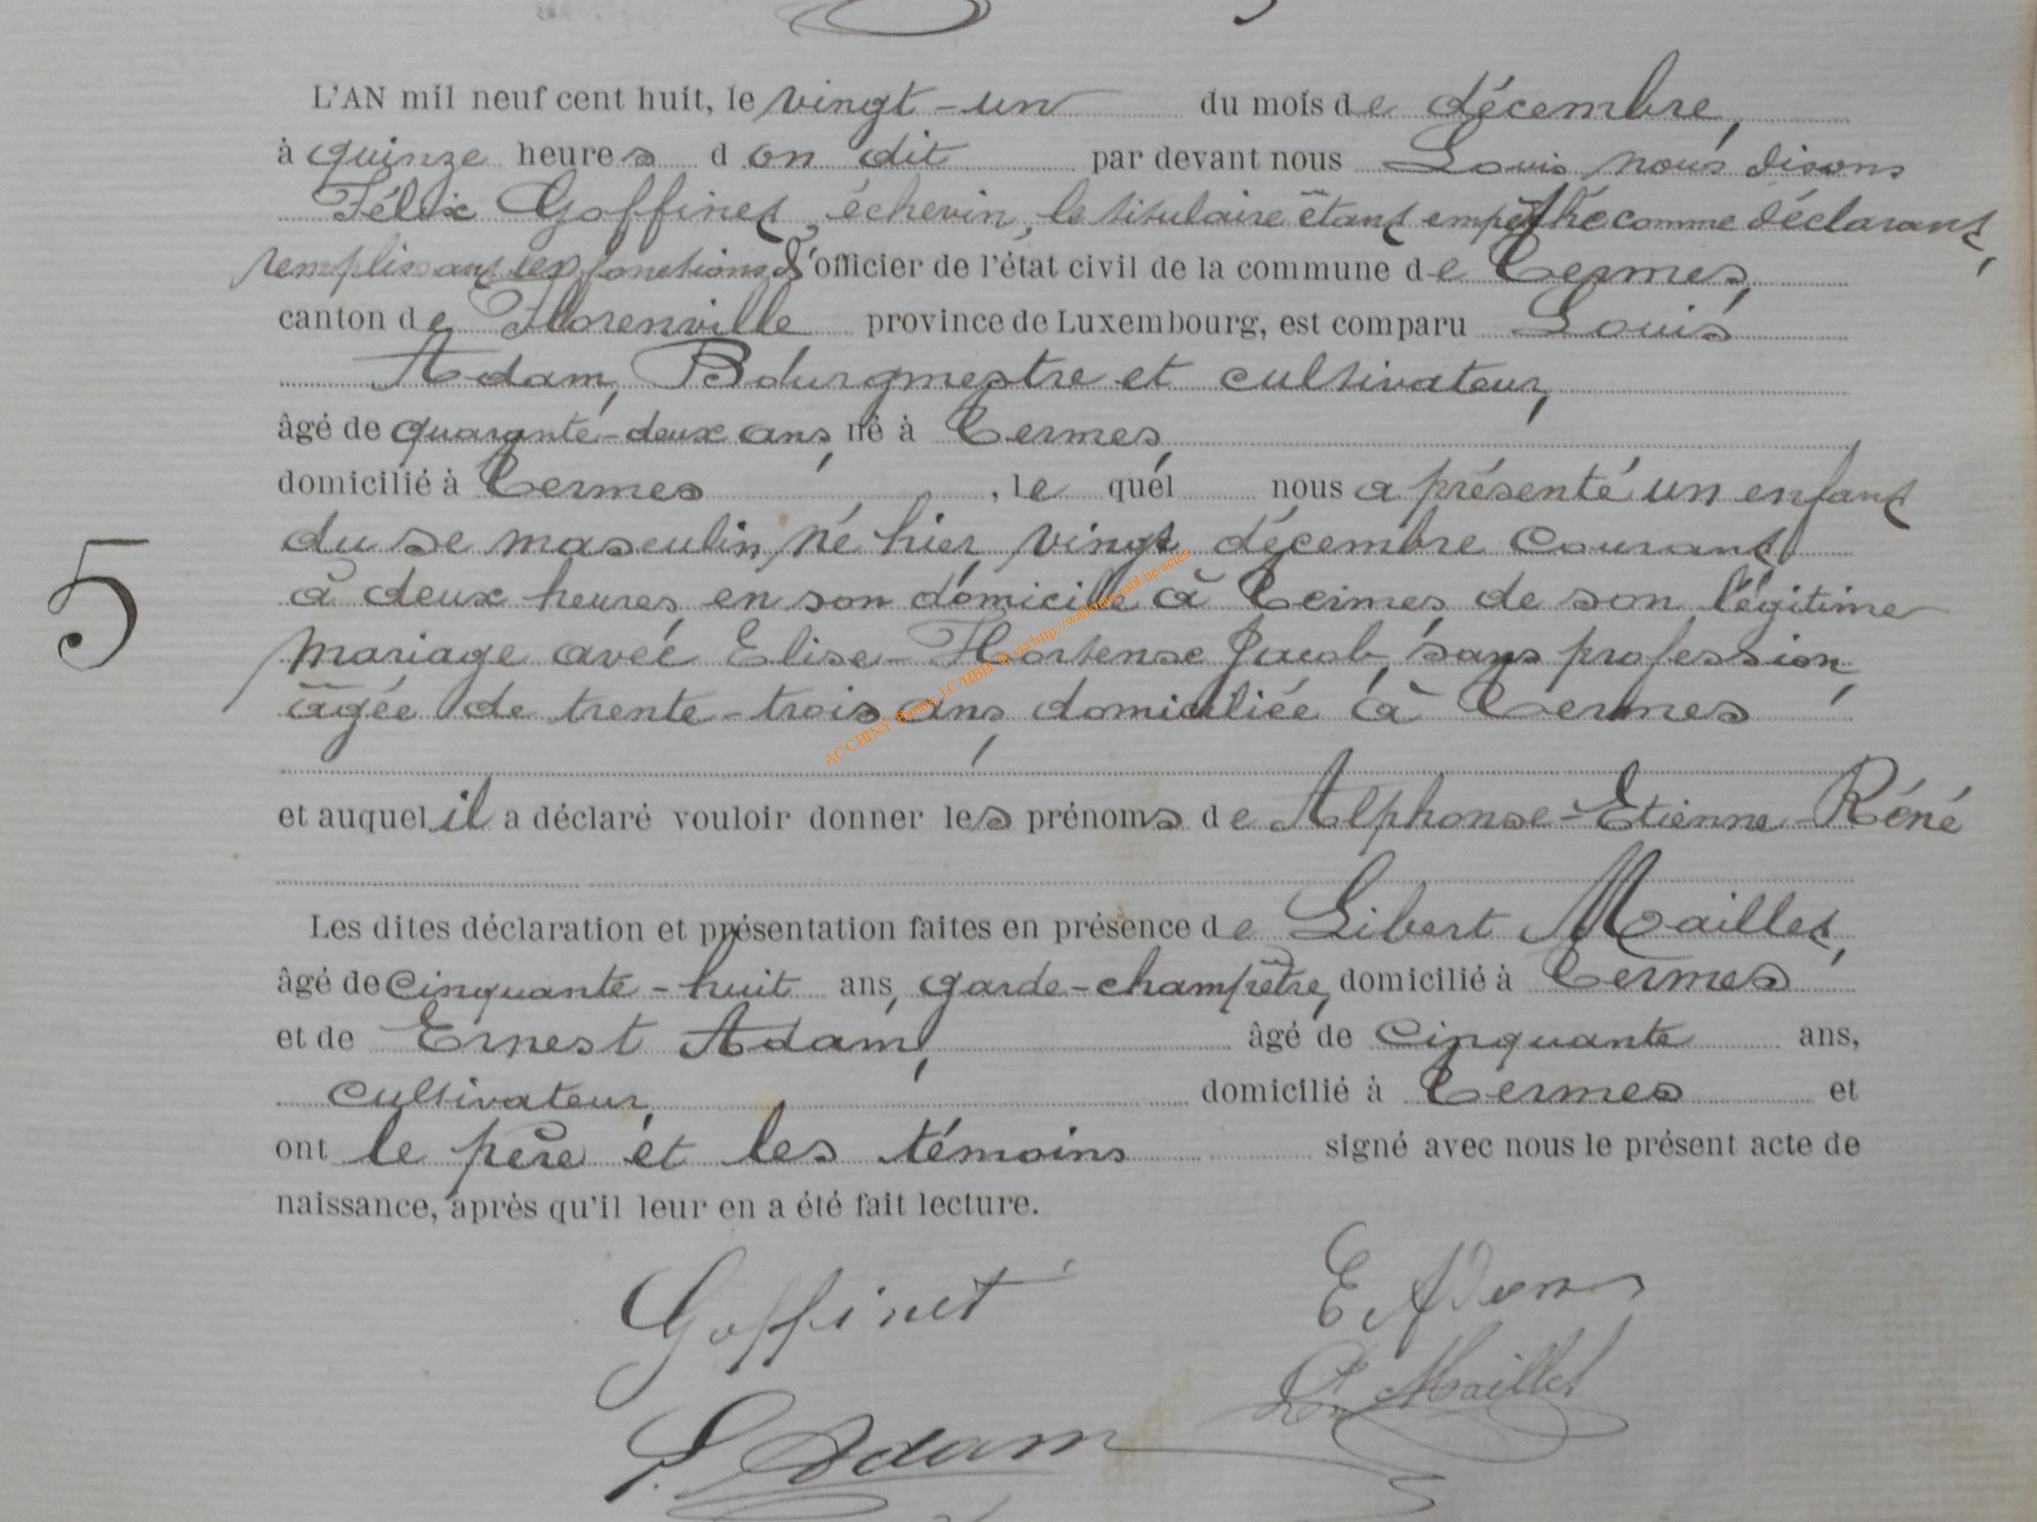 L'AN mil neuf cent huit, le vingt-un du mois de décembre,
à quinze heures d on dit par devant nous Louis nous disons
Félix Goffinet, échevin, le titulaire étant empêché comme déclarant,
remplissant les fonctions d'officier de l'état civil de la commune de Termes,
canton de Florenville province de Luxembourg, est comparu Louis
Adam, Bourgmestre et cultivateur,
âgé de quarante-deux ans, né à Termes,
domicilié à Termes, le quel nous a présenté un enfant
du se masculin, né hier, vingt décembre courant
à deux heures, en son domicile à Termes, de son légitime
mariage avec Elise-Hortense Jacob, sans profession,
âgée de trente-trois ans, domiciliée à Termes
5
et auquel il a déclaré vouloir donner les prénoms de Alphonse-Etienne-Réné
Les dites déclaration et présentation faites en présence de Libert Maillet,
âgé de cinquante-huit ans, garde-champêtre, domicilié à Termes
et de Ernest Adam, âgé de cinquante ans,
cultivateur, domicilié à Termes et
ont le père et les témoins signé avec nous le présent acte de
naissance, après qu'il leur en a été fait lecture.
Goffinet E Adam
L. Maillet
L. Adam
AC CHINY Photos J.C/HBH @ via http://wallonia-asbl.be/actes